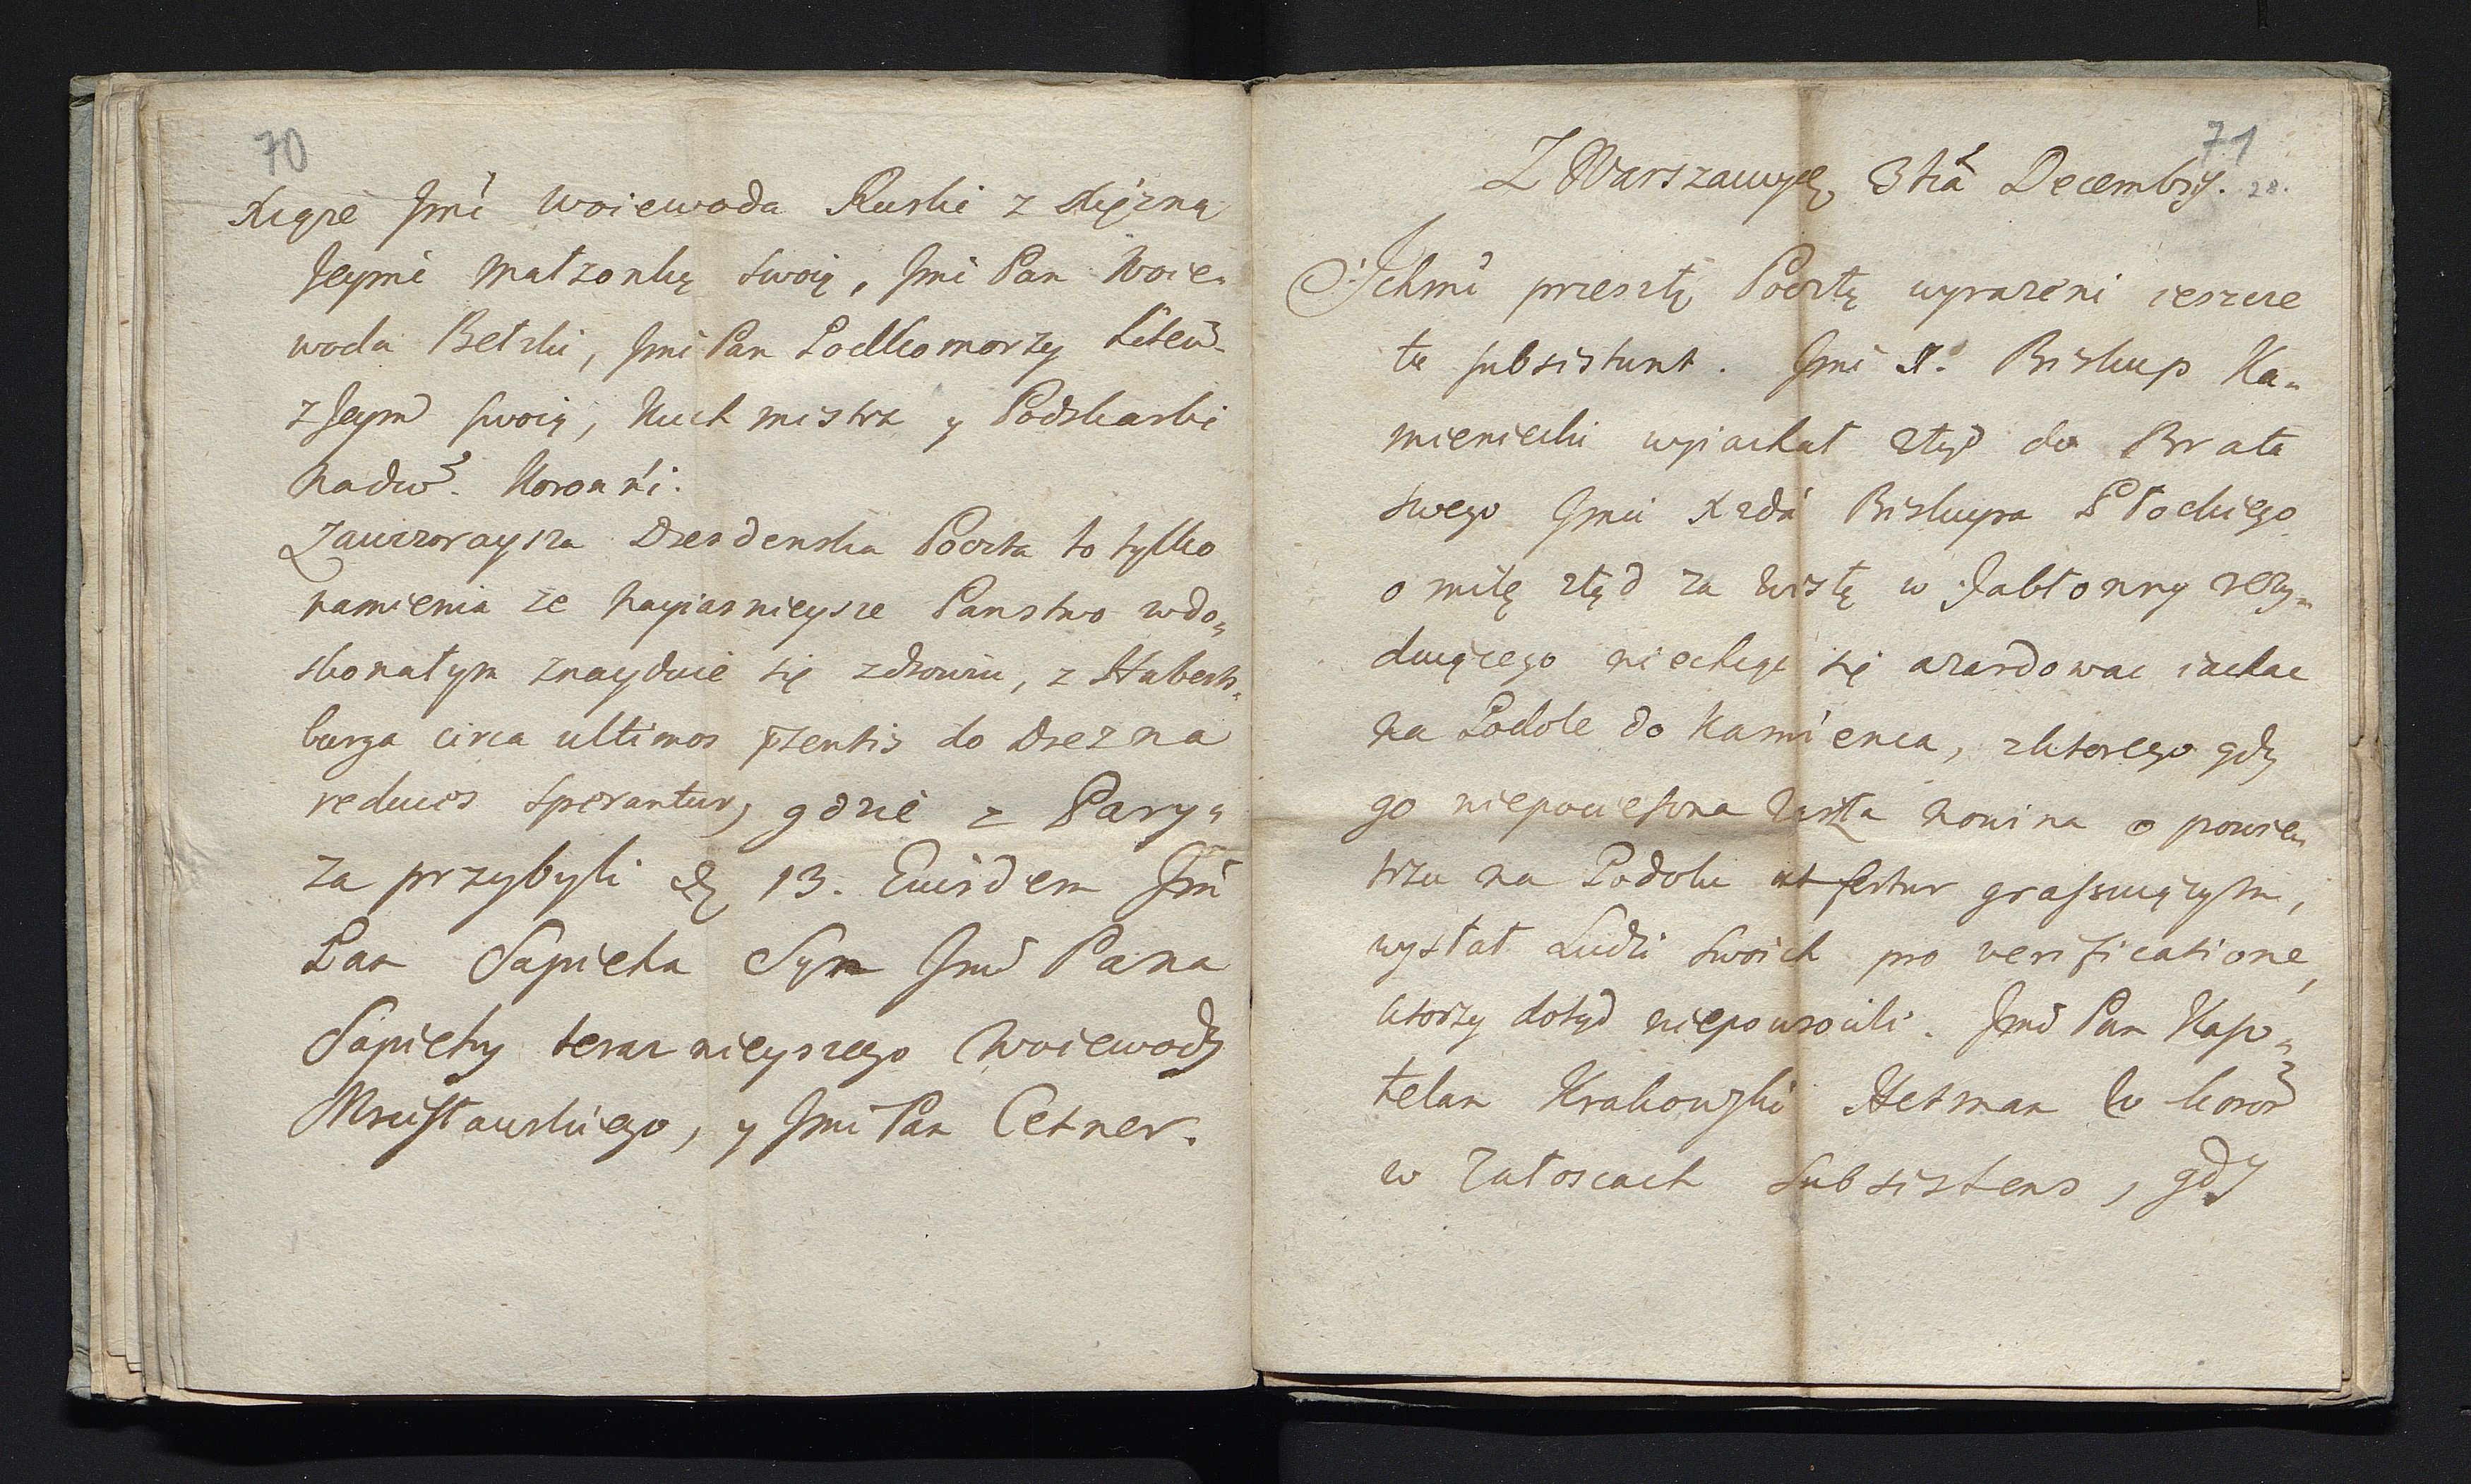 70
Xiąże Jmć Woiewoda Ruski z Xięzną
Jeymć Małzonką swoią, Jmć Pan Woie-
woda Bełzki, Jmć Pan Podkomorzy Litew.
z Jeym swoią, Kuchmistrz y Podskarbi
Nadw. Koronni.
Zawczoraysza Drezdenska Poczta to tylko
namienia ze Nayiasnieysze Panstwo w do-
skonałym znayduie się zdrowiu, z Huberts-
burga circa ultimos pzentis do Drezna
reduces sperantur, gdzie z Pary-
za przybyli dy 13. Euisdem Jmć
Pan Sapieha Syn Jmć Pana
Sapiehy teraznieyszego Woiewody
Mscisławskiego, y Jmć Pan Cetner.
71
Z Warszawy dy 3tia Decembry. 28.
Ichmć przeszłą Pocztą wyrażeni ieszcze
tu subsistunt. Jmć X. Biskup Ka-
mieniecki wyiachał ztąd do Brata
swego Jmci Xzdá Biskupa Płockiego
o milę ztąd za Wisłą w Jabłonny rezy-
duiącego niechcąc się azardowac iachac
na Podole do Kamienca, z ktorego gdy
go niepocieszna Nowina o powie-
trzu na Podolu ut fertur grassuiącym,
wysłał Ludzi swoich pro verificatione,
ktorzy dotąd niepowrocili. Jmć Pan Kasz-
telan Krakowski Hetman W. koron
w Załoscach subsistens, gdy